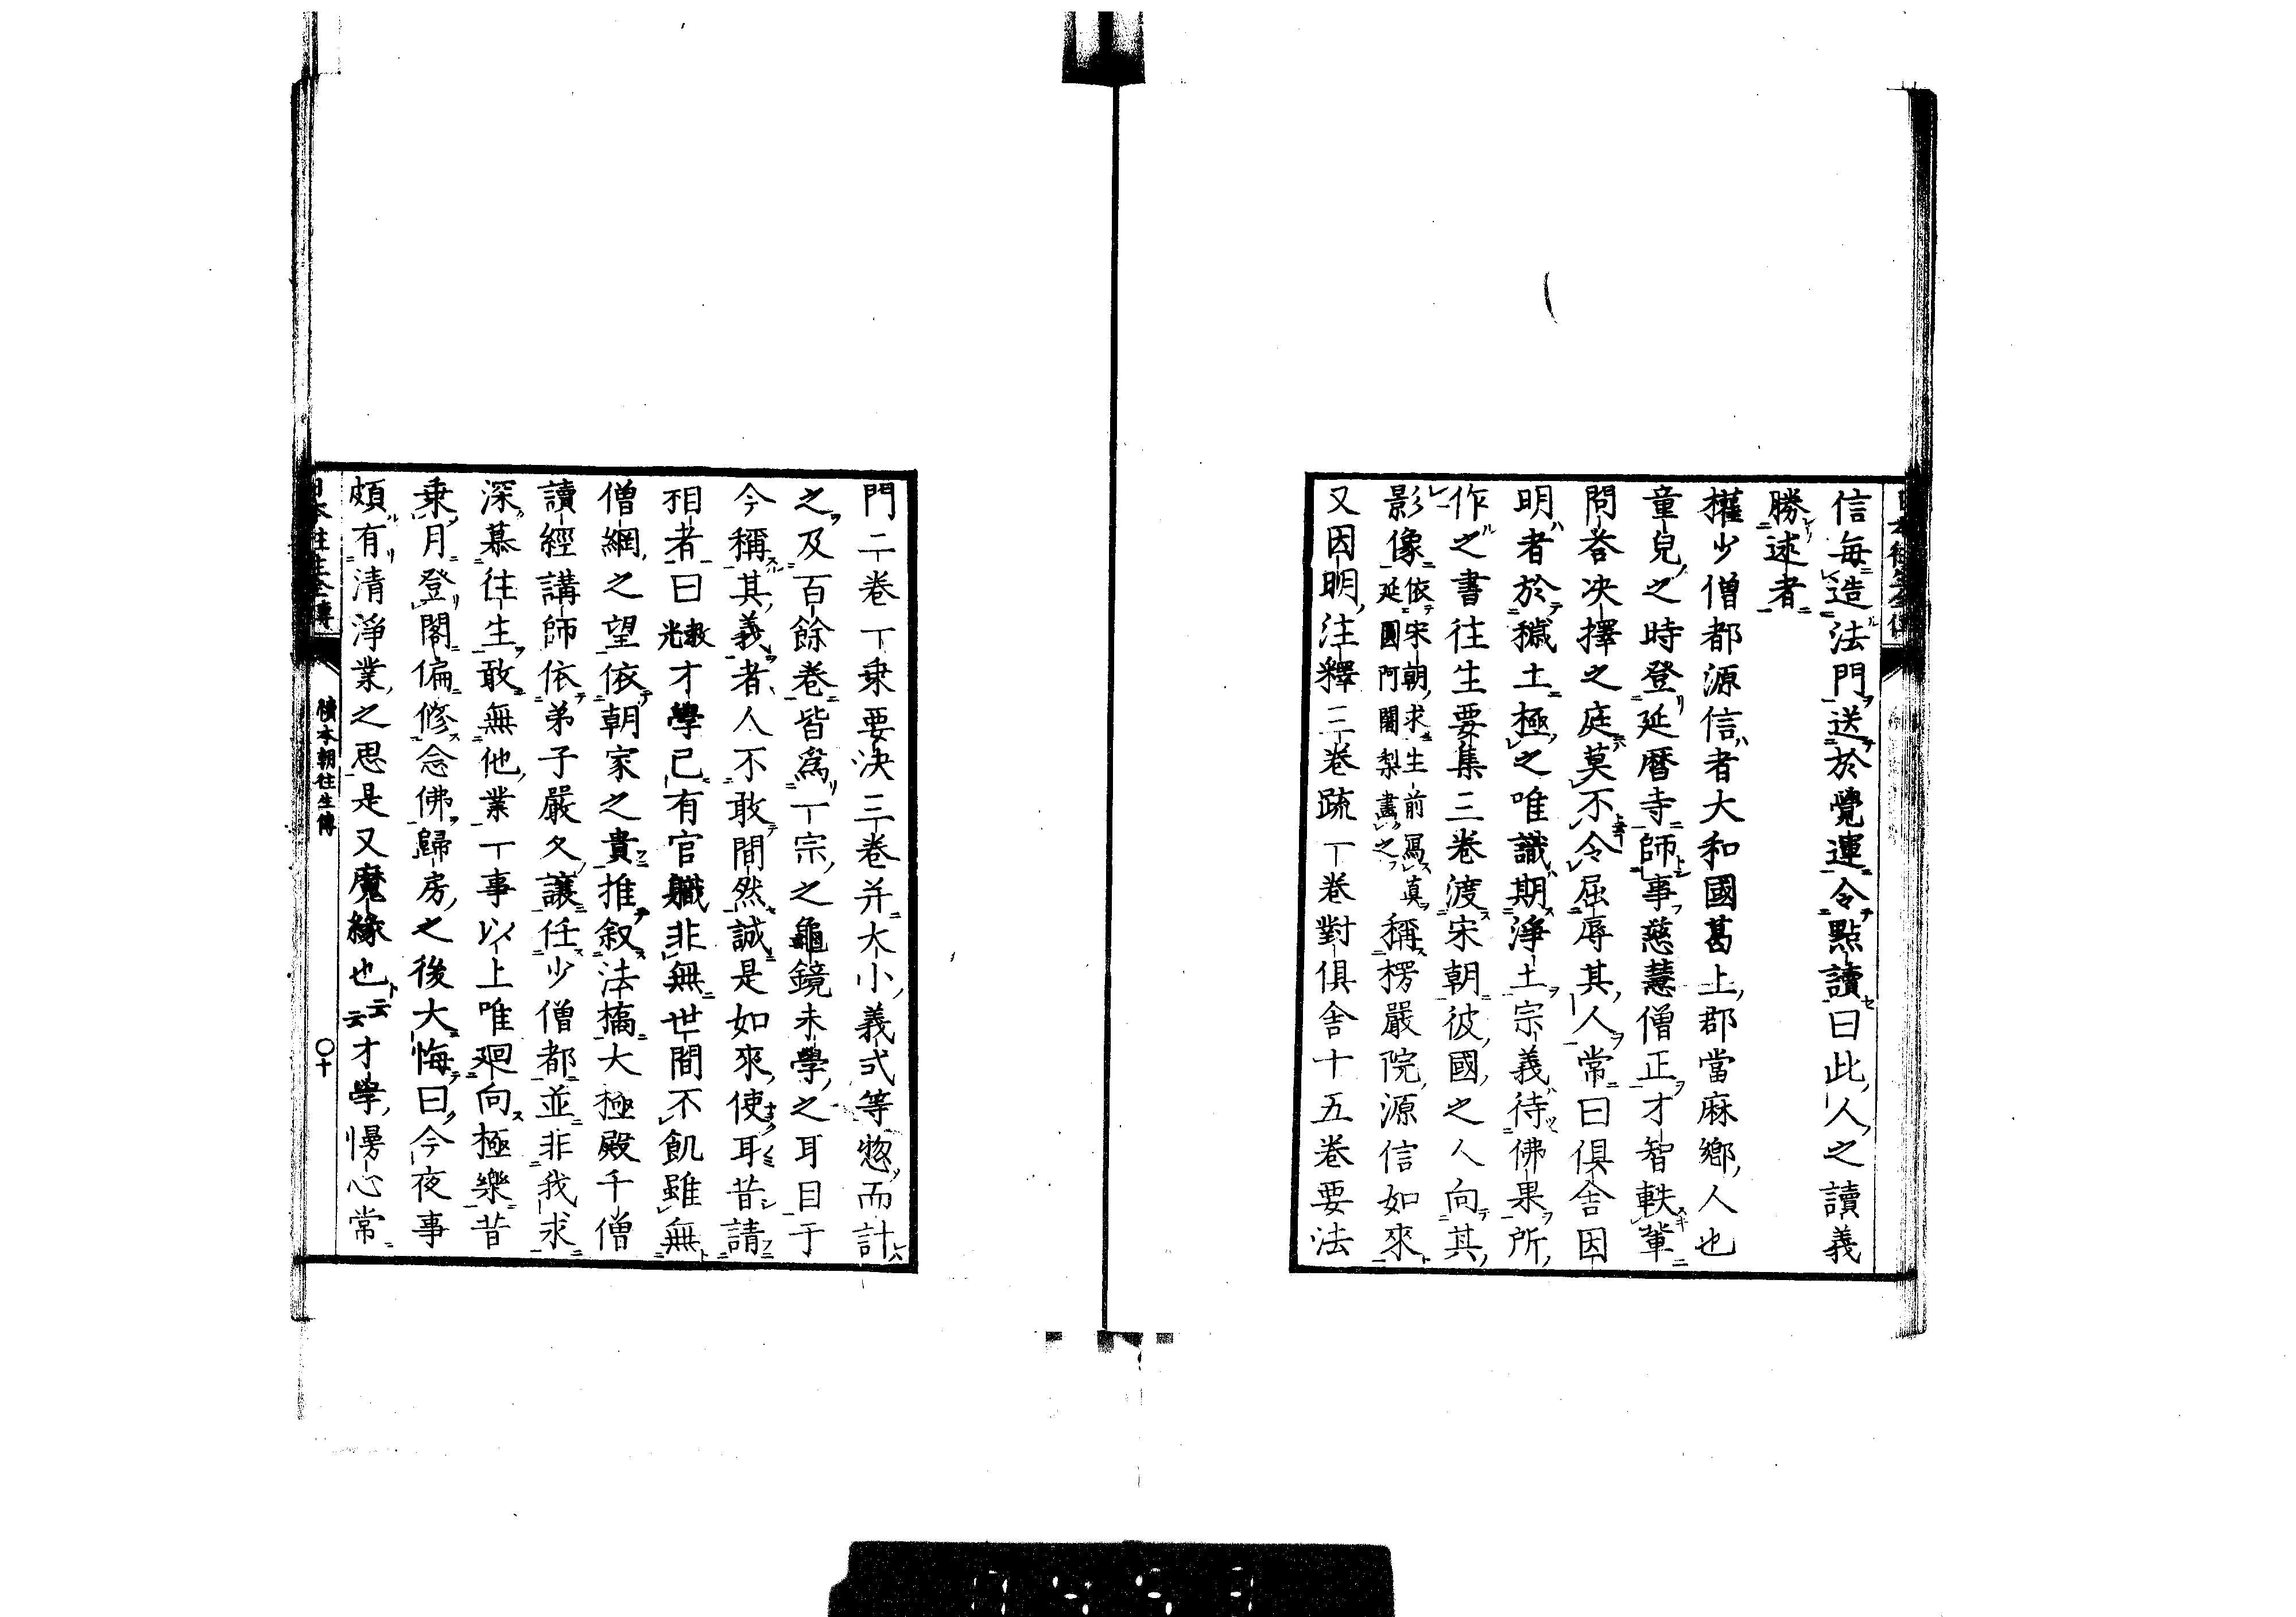 信每造法門送於覺運令點讀曰此人之讀義
勝述者
權少僧都源信者大和國葛上郡當麻鄉人也
童兒之時登延曆寺師事慈慧僧正才智軼輩
問答決擇之庭莫不令屈辱其人常曰俱舍因
明者於穢土極之唯識期淨土宗義待佛果所
作之書往生要集三卷渡宋朝彼國之人向其
影像依宋朝求生前寫真延圓阿闍梨畫之稱楞嚴院源信如來
又因明注釋三卷疏一卷對俱舍十五卷要法
門二卷一乘要決三卷并大小義弍等惣而計
之及百餘卷皆為一宗之龜鏡未學之耳目于
今稱其義者人不敢間然誠是如來使耳昔請
相者曰救光才學已有官職非無世間不飢雖無
僧綱之望依朝家之貴推叙法橋大極殿千僧
讀經講師依弟子嚴久讓任少僧都並非我求
深慕往生敢無他業一事以上唯廻向極樂昔
乘月登閣偏修念佛歸房之後大悔曰今夜事
頗有清淨業之思是又魔緣也云云才學慢心常
日本往生全傳
續本朝往生傳
〇十